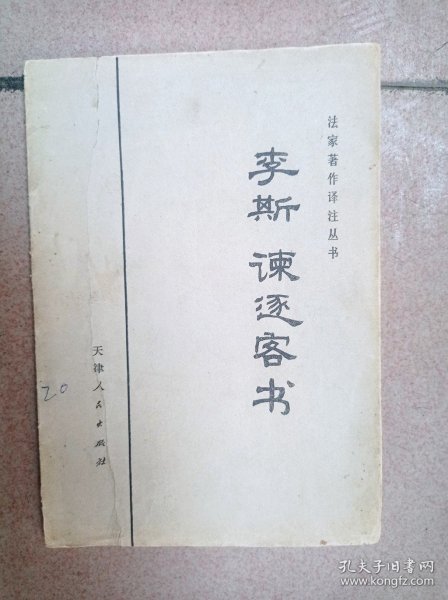 法家著作译注丛书
李斯 谏逐客书
天津人民出版社
20
孔夫子旧书网
www.kongfz.com